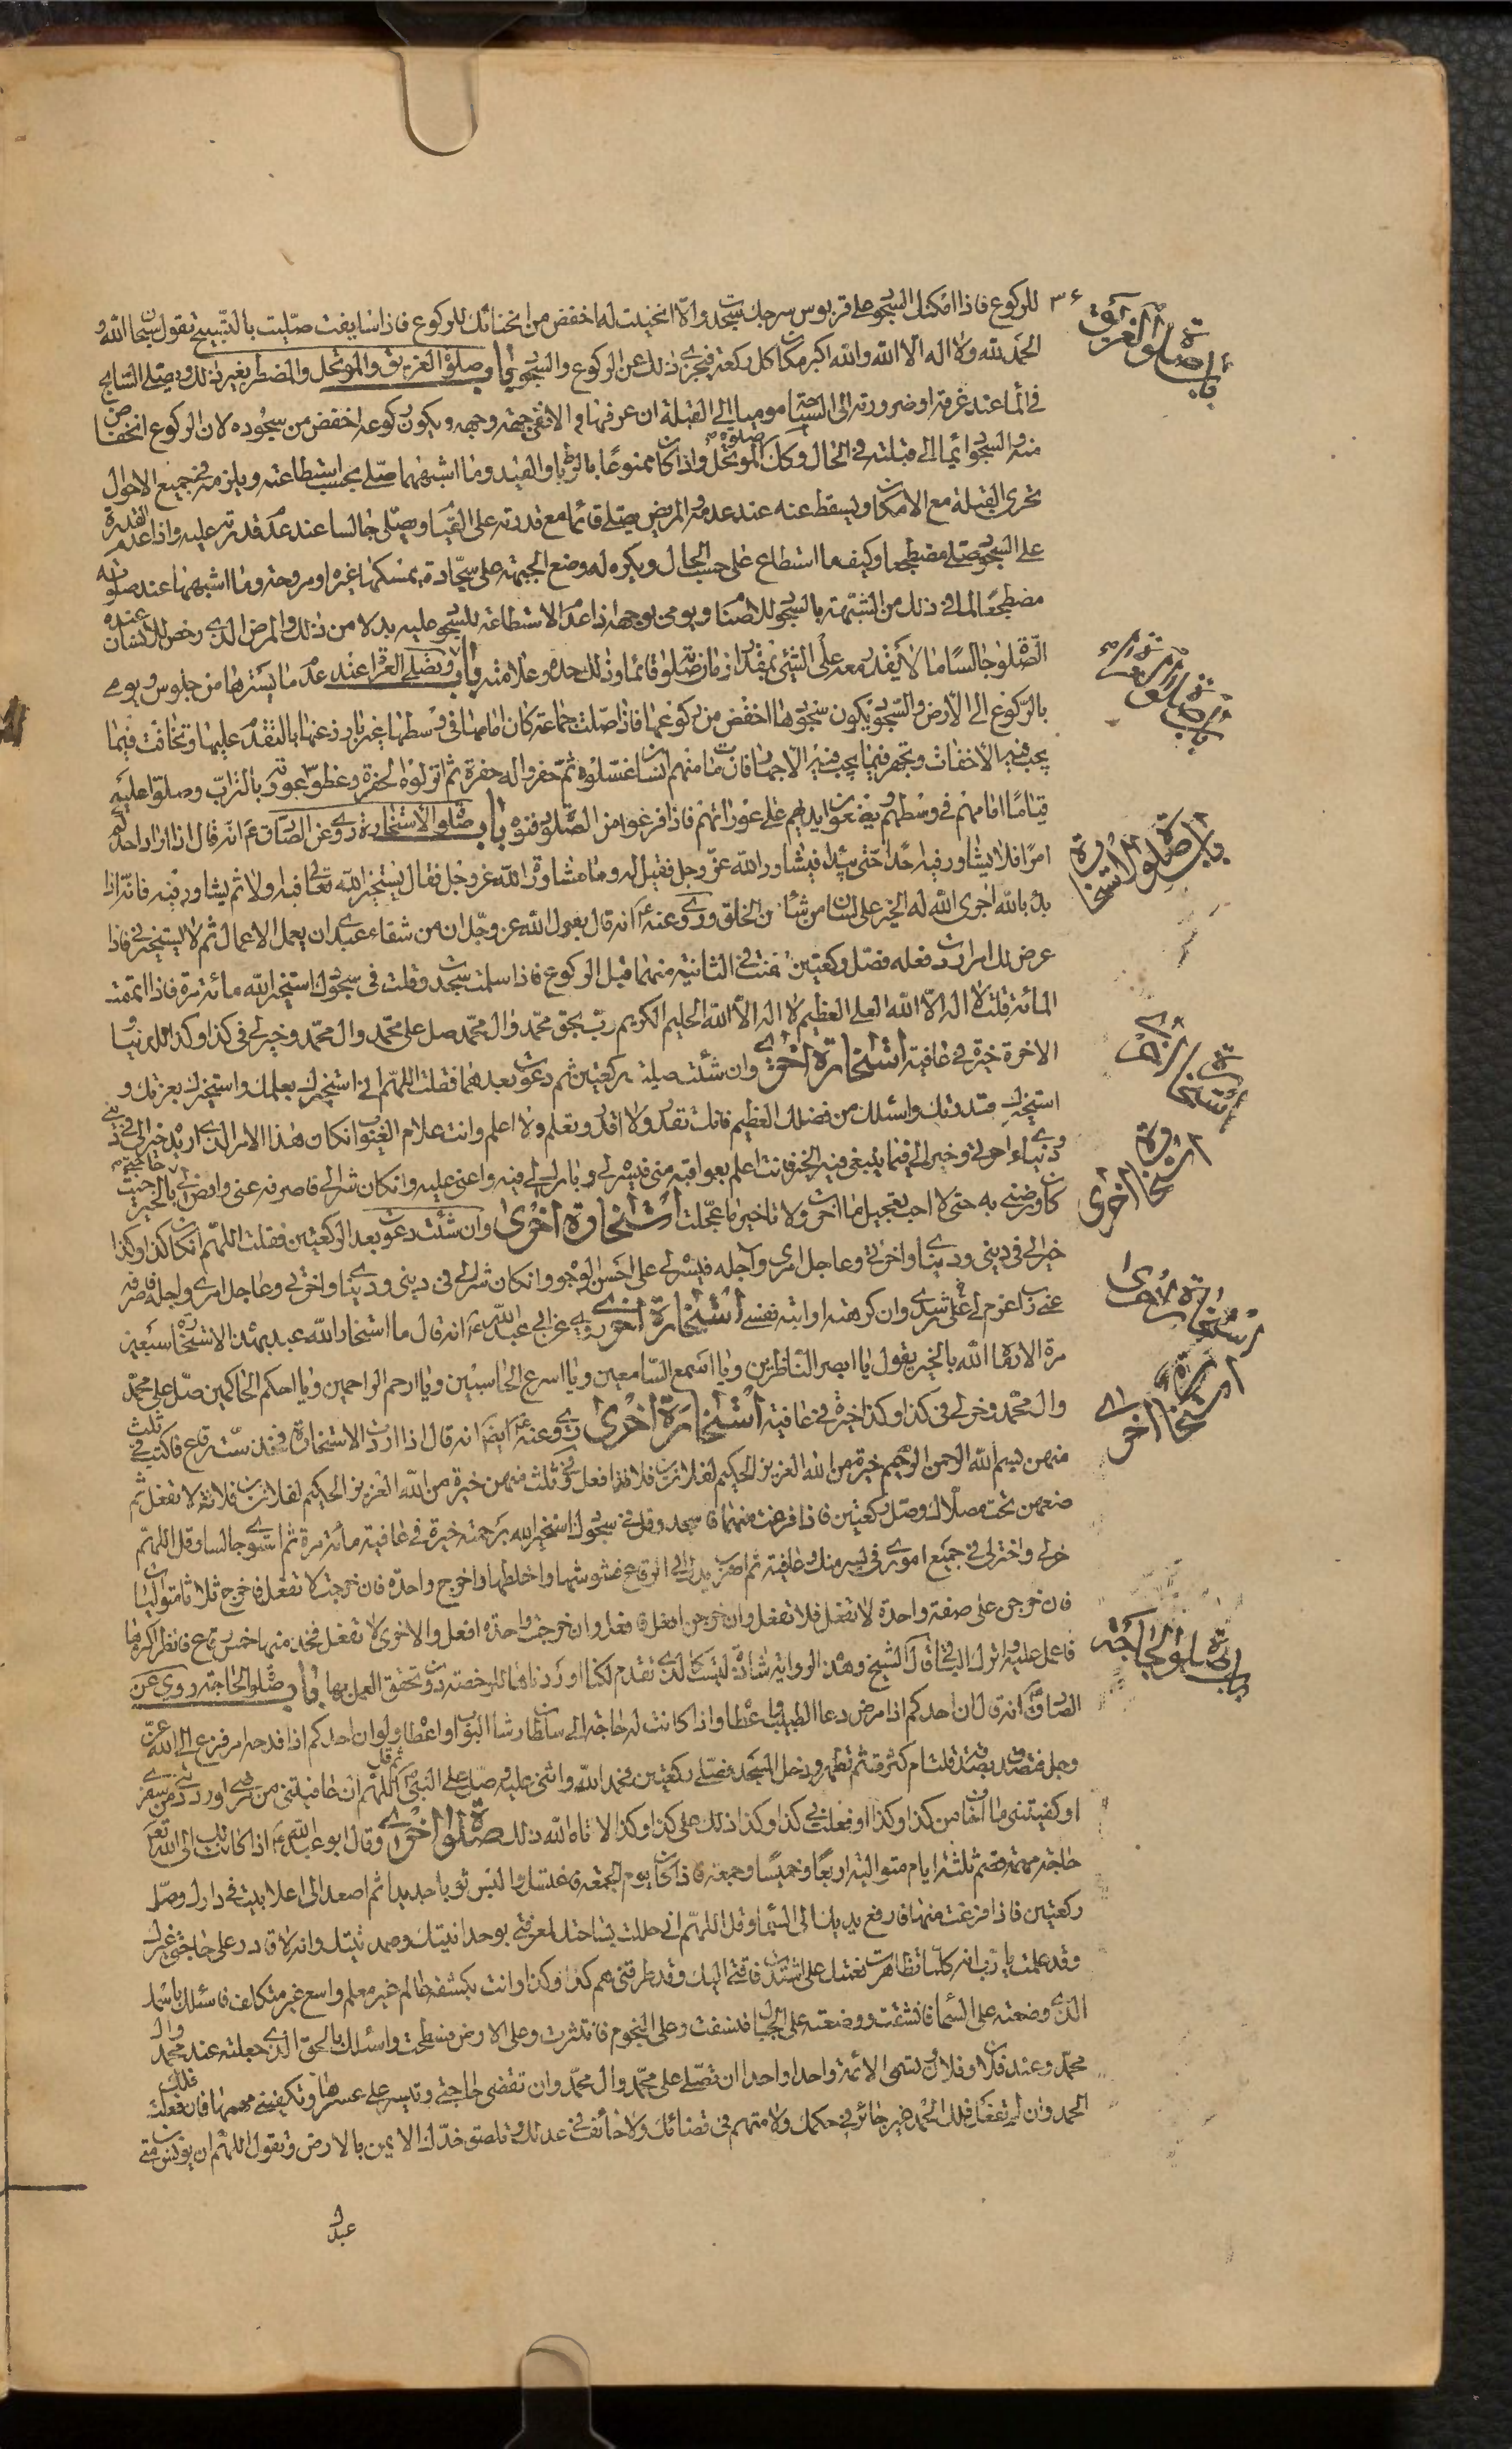 ٣٦
للركوع فاذا امكنك السجود على قربوس سرجك سجدت والا انحنيت له اخفض من انحنائك للركوع فاذا سايفت صليت بالتسبيح تقول سبحان الله و
الحمد لله ولا اله الا الله والله اكبر مكان كل ركعة فيجزى ذلك عن الركوع والسجود باب صلوة الغريق والموتحل والمضطر بغير ذلك ويصلى السابح
فى الماء عند غرقه او ضرورته الى السباحة موميا الى القبلة ان عرفها والا ففى جهة وجهه ويكون ركوعه اخفض من سجوده لان الركوع انخفاض
منه والسجود ايماء الى قبلته فى الحال وكك صلوة الموتحل واذا كان ممنوعا بالرباط والقيد وما اشبههما صلى بحسب استطاعته ويلزمه فى جميع الاحوال
تحرى القبلة مع الامكان ويسقط عنه عند عدمه والمريض يصلى قائما مع قدرته على القيام ويصلى جالسا عند عدم قدرته عليه واذا عدم القدرة
على السجود صلى مضطجعا وكيف ما استطاع على حسب الحال ويكره له وضع الجبهة على سجادة يمسكها غيره او مروحة وما اشبههما عند صلوته
مضطجعا لما فى ذلك من الشبهة بالسجود للاصنام ويومى بوجهه اذا عدم الاستطاعة للسجود عليه بدلا من ذلك والمرض الذى رخص للانسان عنده
الصلوة جالسا ما لا يقدر معه على المشى بمقدار زمان صلوته قائما وذلك حده وعلامته باب ويصلى العراة عند عدم ما يسترها من جلوس ويومى
بالركوع الى الارض والسجود يكون سجودها اخفض من ركوعها فاذا صلت جماعة كان امامها فى وسطها غير بارز عنها بالتقدم عليها وتخافت فيما
يجب فيه الاخفات وتجهر فيما يجب فيه الاجهار فان مات منهم انسان غسلوه ثم حفروا له حفرة ثم انزلوه الحفرة وغطوا عورته بالتراب وصلوا عليه
قياما امامهم فى وسطهم يضعون ايديهم على عوراتهم فاذا فرغوا من الصلوة دفنوه باب صلوة الاستخارة روى عن الصادق ع انه قال اذا اراد احدكم
امرا فلا يشاور فيه احدا حتى يبدا فيشاور الله عز وجل فقيل له وما مشاورة الله عز وجل فقال يستخير الله تعالى فيه اولا ثم يشاور فيه فانه اذا
بدا بالله اجرى الله له الخير على لسان من شاء من الخلق وروى عنه ع انه قال يقول الله عز وجل ان من شقاء عبدى ان يعمل الاعمال ثم لا يستخيرنى فاذا
عرض لك امر اردت فعله فصل ركعتين تقنت فى الثانية منهما قبل الركوع فاذا سلمت سجدت وقلت فى سجودك استخير الله مائة مرة فاذا اتممت
المائة قلت لا اله الا الله العلى العظيم لا اله الا الله الحليم الكريم رب بحق محمد وال محمد صل على محمد وال محمد وخر لى فى كذا وكذا للدنيا و
الاخرة خيرة فى عافية استخارة اخرى وان شئت صليت ركعتين ثم دعوت بعدهما فقلت اللهم انى استخيرك بعلمك واستخيرك بعزتك و
استخيرك بقدرتك واسئلك من فضلك العظيم فانك تقدر ولا اقدر وتعلم ولا اعلم وانت علام الغيوب ان كان هذا الامر الذى اريد خيرا لى فى دينى
ودنياى واخرتى وخيرا لى فيما ينبغى فيه الخير فانت اعلم بعواقبه منى فيسره لى وبارك لى فيه واعنى عليه وان كان شرا لى فاصرفه عنى واقض لى بالخير حيث
كان ورضنى به حتى لا احب تعجيل ما اخرت ولا تاخير ما عجلت استخارة اخرى وان شئت دعوت بعد الركعتين فقلت اللهم ان كان كذا وكذا
خيرا لى فى دينى ودنياى واخرتى وعاجل امرى واجله فيسره لى على احسن الوجوه وان كان شرا لى فى دينى ودنياى واخرتى وعاجل امرى واجله فاصرفه
عنى رب اعزم لى على رشدى وان كرهته او ابته نفسى استخارة اخرى روى عن ابى عبد الله ع انه قال ما استخار الله عبد بهذه الاستخارة سبعين
مرة الا رماه الله بالخير يقول يا ابصر الناظرين ويا اسمع السامعين ويا اسرع الحاسبين ويا ارحم الراحمين ويا احكم الحاكمين صل على محمد
وال محمد وخر لى فى كذا وكذا خيرة فى عافية استخارة اخرى روى عنه ع ايضا انه قال اذا اردت الاستخارة فخذ ست رقاع فاكتب فى ثلث
منهن بسم الله الرحمن الرحيم خيرة من الله العزيز الحكيم لفلان بن فلانة افعل وفى ثلث منهن خيرة من الله العزيز الحكيم لفلان بن فلانة لا تفعل ثم
ضعهن تحت مصلاك وصل ركعتين فاذا فرغت منهما فاسجد وقل فى سجودك استخير الله برحمته خيرة فى عافية مائة مرة ثم استو جالسا وقل اللهم
خر لى واختر لى فى جميع امورى فى يسر منك وعافية ثم اضرب بيدك الى الرقاع فشوشها واخلطها واخرج واحدة فان خرجت لا تفعل فاخرج ثلاثا متواليات
فان خرجن على صفة واحدة لا تفعل فلا تفعل وان خرجن افعل فافعل وان خرجت واحدة افعل والاخرى لا تفعل فخذ منها خمس رقاع فانظر اكثرها
فاعمل عليه واترك الباقى قال الشيخ وهذه الرواية شاذة ليست كالذى تقدم لكنا اوردناها للرخصة دون تحقق العمل بها باب صلوة الحاجة روى عن
الصادق ع انه قال ان احدكم اذا مرض دعا الطبيب واعطاه واذا كانت له حاجة الى سلطان رشا البواب واعطاه ولو ان احدكم اذا فدحه امر فزع الى الله عز
وجل فتصدق بصدقة قلت ام كثرت ثم تطهر ودخل المسجد فصلى ركعتين فحمد الله واثنى عليه وصلى على النبى ص ثم قال اللهم ان عافيتنى من مرضى او رددتنى من سفرى
او كفيتنى ما اخاف من كذا وكذا او فعلت بى كذا وكذا فذلك على كذا وكذا الا اتاه الله ذلك صلوة اخرى وقال ابو عبد الله ع اذا كانت لك الى الله تعالى
حاجة مهمة فصم ثلثة ايام متوالية اربعا وخميسا وجمعة فاذا كان يوم الجمعة فاغتسل والبس ثوبا جديدا ثم اصعد الى اعلا بيت فى دارك وصل
ركعتين فاذا فرغت منهما فارفع يديك الى السماء وقل اللهم انى حللت بساحتك لمعرفتى بوحدانيتك وصمدانيتك وانه لا قادر على حاجتى غيرك
وقد علمت يا رب انه كلما تظاهرت نعمتك على اشتدت فاقتى اليك وقد طرقنى هم كذا وكذا وانت بكشفه عالم غير معلم واسع غير متكلف فاسئلك باسمك
الذى وضعته على السماء فانشقت ووضعته على الجبال فنسفت وعلى النجوم فانتثرت وعلى الارض فسطحت واسئلك بالحق الذى جعلته عند محمد وال
محمد وعند فلان وفلان وتسمى الائمة واحدا واحدا ان تصلى على محمد وال محمد وان تقضى حاجتى وتيسر على عسرها وتكفينى مهمها فان فعلت فلك
الحمد وان لم تفعل فلك الحمد غير جائر فى حكمك ولا متهم فى قضائك ولا حائف فى عدلك وتلصق خدك الايمن بالارض وتقول اللهم ان يونس بن متى
عبدك
باب صلوة الغريق
باب صلوة الاستخارة
استخارة اخرى
استخارة اخرى
استخارة اخرى
استخارة اخرى
باب صلوة الحاجة